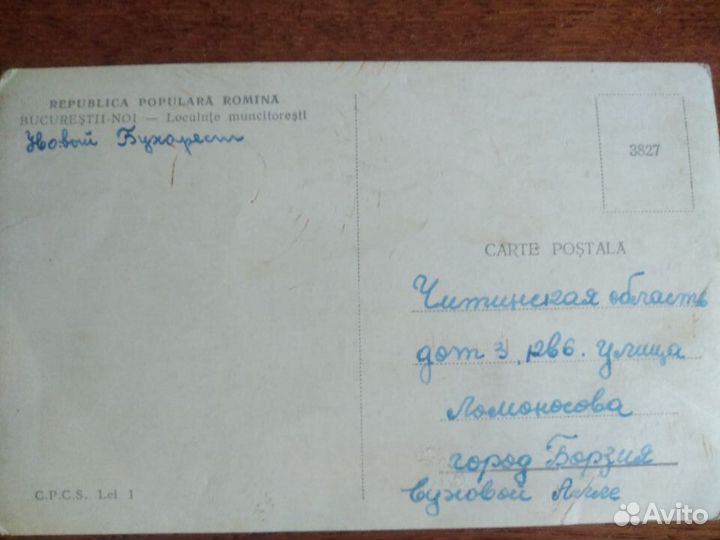 REPUBLICA POPULARĂ ROMÎNĂ
BUCUREȘTII-NOI — Locuințe muncitorești
Новый Бухарест
3827
CARTE POȘTALĂ
Читинская область
дом 3, кв 6. улица
Ломоносова
город Борзия
Суховой Алле
C.P.C.S. Lei 1
Avito